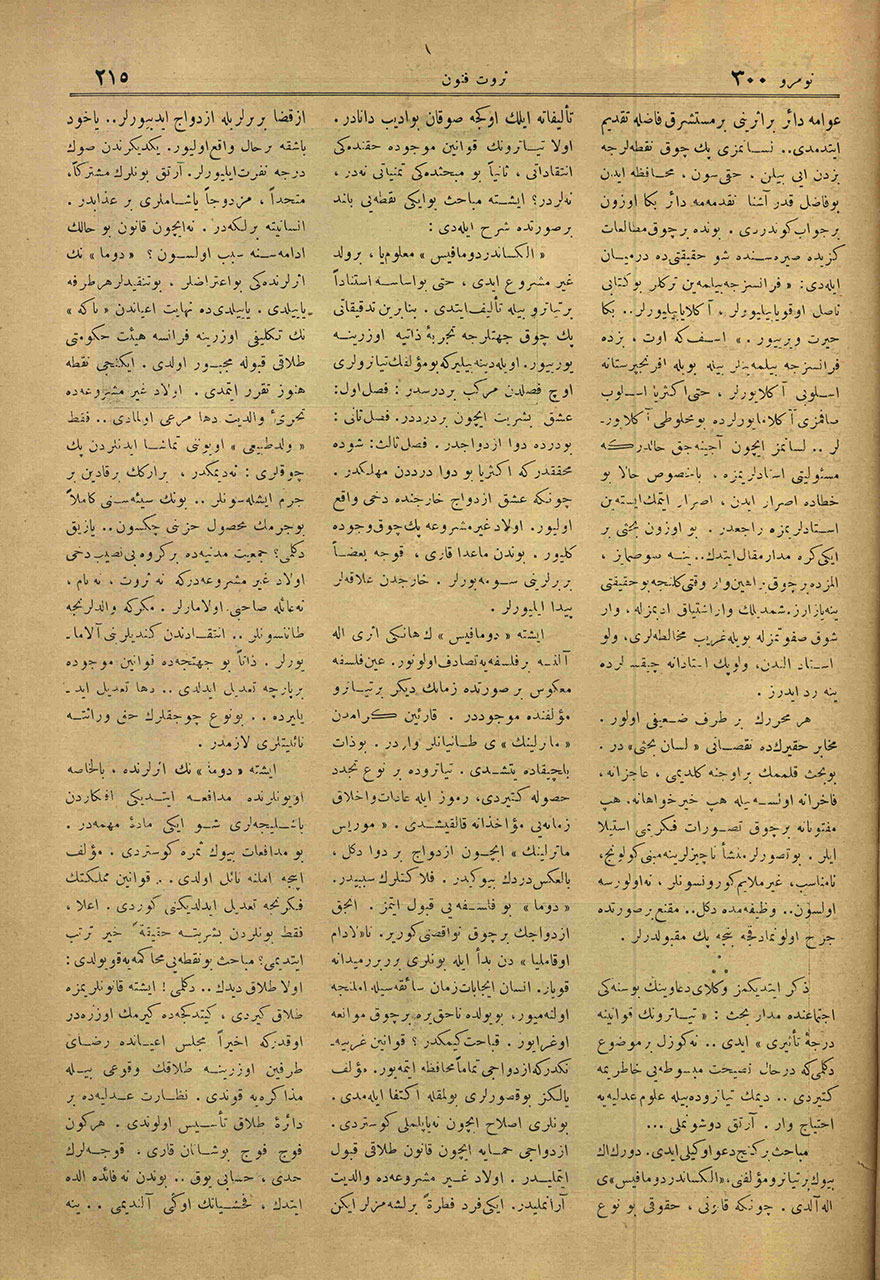 نومرو ٣٠٠
ثروت فنون
٢١٥
عوامه دائر براثرینی برمستشرق فاضله تقدیم
ایتدمدی.. لسانمزی پك چوق نقطه‌لرجه
بزدن ایی بیلن . حتی سون ، محافظه ایدن
بوفاضل قدر آشنا تقدمه‌مه دائر بكا اوزون
برجواب كوندردی . بونده برچوق مطالعات
كزیده صیره‌سنده شو حقیقتی ده درمیان
ایله‌دی : « فرانسزجه بیلمه‌ین تركلر بوكتابی
ناصل اوقویابیلیورلر ، آكلایابیلیورلر.. بكا
حیرت ویرییور . » اسف كه اوت ، بزده
فرانسزجه بیلمه‌ینلر بیله بویله افرنجپرستانه
اسلوبی آكلایورلر ، حتی اكثریا اسلوب
صاغمزی آكلامایورلرده بومخلوطی آكلایور-
لر .. لسانمز ایچون آجینه‌جق حالدركه
مسئولیتی استادلریمزه ، بالخصوص حالا بو
خطاده اصرار ایدن ، اصرار ایتمك ایسته‌ین
استادلریمزه راجعدر . بو اوزون بحثی بر
ایكی كره مدار مقال ایتدك.. ینه سوصمایز ،
المزده برچوق براشین وار وقتی كلنجه بوحقیقتی
ینه یازارز. شمدیلك وار اشتیاق ادبمزله ، وار
شوق صفوتمزله بویله غریب مخالطه‌لری، ولو
استاد الندن، ولوپك استادانه چیقسه‌لرده
ینه رد ایدرز .
هر محررك بر طرف ضعیفی اولور .
مخابر حقیرك ده نقصانی « لسان بحثی » در .
بوبحث قلممك براوجنه كلدیمی ، عاجزانه ،
فاخرانه اولسه بیله هپ خیرخواهانه، هپ
مفتونانه برچوق تصورات فكریمی استیلا
ایلر . بوتصورلر منشأ ناچیزلرینه مبنی كولونج،
نامناسب، غیرملایم كورونسونلر ، نه‌اولورسه
اولسون.. وظیفه‌مده دكل.. مقنع برصورتده
جرح اولونمادقجه بنجه پك مقبولدرلر .
ذكر ایتدیكمز وكلای دعاوینك بوسنه‌كی
اجتماعنده مدار بحث : « تیاترونك قوانینه
درجهٔ تأثیری » ایدی .. نه‌كوزل برموضوع
دكلمی كه درحال نصیحت مبسوطه‌یی خاطریمه
كتیردی .. دیمك تیاتروده بیله علوم عدلیه‌یه
احتیاج وار . آرتق دوشونملی ...
مباحث بركنج دعوا وكیلی ایدی. دورك الك
بیوك برتیاترو مؤلفنی، «الكساندر دوما فیس»ی
اله آلدی . چونكه قانونی ، حقوقی بو نوع
تألیفاته ایلك اوكجه صوقان بوادیب دانادر.
اولا تیاترونك قوانین موجوده حقنده‌كی
انتقاداتی ، ثانیاً بو مبحثده‌كی تمنیاتی نه‌در ،
نه‌لردر؟ ایشته مباحث بوایكی نقطه‌یی باند
برصورتده شرح ایله‌دی :
« الكساندر دوما فیس » معلوم یا ، برولد
غیر مشروع ایدی ، حتی بواساسه استناداً
برتیاترو بیله تألیف ایتدی . بنابرین تدقیقاتی
پك چوق جهتلرجه تجربهٔ ذاتیه اوزرینه
یورییور. اویله دینه‌بیلیركه بومؤلفك تیاترولری
اوچ فصلدن مركب بردرسدر : فصل اول:
عشق بشریت ایچون بردرددر. فصل ثانی :
بودرده دوا ازدواجدر. فصل ثالث: شوده
محققدركه اكثریا بو دوا درددن مهلكدر .
چونكه عشق ازدواج خارجنده دخی واقع
اولیور. اولاد غیر مشروعه پك چوق وجوده
كلیور . بوندن ماعدا قاری ، قوجه بعضاً
بربرلرینی سومه‌یورلر . خارجدن علاقه‌لر
پیدا ایلیورلر .
ایشته « دوما فیس » ك هانكی اثری اله
آلنسه برفلسفه‌یه تصادف اولونور. عین فلسفه
معكوس برصورتده زمانك دیكر برتیاترو
مؤلفنده موجوددر . قارئین كرامدن
« مارلینك » ی طانیانلر واردر . بوذات
بلچیقاده یتشدی . تیاتروده بر نوع تجدد
حصوله كتیردی، رموز ایله عادات واخلاق
زمانه‌یی مؤاخذانه قالقیشدی . « موریس
ماترلینك » ایچون ازدواج بر دوا دكل ،
بالعكس دردك بیوكیدر . فلاكتلرك سببیدر.
« دوما » بو فلسفه‌یی قبول ایتمز . انجق
ازدواجك برچوق نواقصنی كوریر. «لادام
اوقاملیا» دن بدأ ایله بونلری برر برر میدانه
قویار. انسان ایجابات زمان سائقه‌سیله املنجه
اوله‌میور، بویولده ناحق یره برچوق موانعه
اوغرایور . قباحت كیمكدر ؟ قوانین غربیه-
نكدركه ازدواجی تماماً محافظه ایتمه‌یور. مؤلف
یالكز بوقصورلری بولمقله اكتفا ایله‌مدی .
بونلری اصلاح ایچون نه‌یاپلملی كوستردی .
ازدواجی حمایه ایچون قانون طلاقی قبول
ایتملیدر . اولاد غیر مشروعه‌ده والدیت
آرانملیدر. ایكی فرد فطرةً برلشه‌مزلر ایكن
ازقضا بربرلریله ازدواج ایدییورلر.. یاخود
باشقه برحال واقع اولیور. یكدیكرندن صوك
درجه نفرت ایلیورلر. آرتق بونلرك مشتركاً،
متحداً ، مزدوجاً یاشاملری بر عذابدر .
انسانیته برلكه‌در . نه‌ایچون قانون بو حالك
ادامه‌سنه سبب اولسون ؟ « دوما » نك
اثرلرنده‌كی بواعتراضلر ، بوتنقیدلر هرطرفه
یاییلدی . یاییلدی ده نهایت اعیاندن « ناكه »
نك تكلیفی اوزرینه فرانسه هیئت حكومتی
طلاقی قبوله مجبور اولدی . ایكنجی نقطه
هنوز تقرر ایتمدی . اولاد غیر مشروعه‌ده
تحریٔ والدیت دها مرعی اولمادی .. فقط
« ولد طبیعی » اویوننی تماشا ایدنلردن پك
چوقلری : نه‌دیمكدر ، براركك برقادین بر
جرم ایشله‌سونلر .. بونك سیئه‌سنی كاملاً
بوجرمك محصول حزنی چكسون.. یازیق
دكلمی؟ جمعیت مدنیه‌ده برگروه بی نصیب دخی
اولاد غیر مشروعه‌دركه نه ثروت ، نه نام ،
نه‌عائله صاحبی اولامارلر . مكركه والدلرنجه
طانسونلر .. انتقاددن كندیلرنی آلاما-
یورلر . ذاتاً بو جهتجه‌ده قوانین موجوده
برپارچه تعدیل ایدلدی .. دها تعدیل اید-
یلیرده .. بونوع چوجقلرك حق وراثته
نائلیتلری لازمدر .
ایشته « دوما » نك اثرلرنده . بالخاصه
اویونلرنده مدافعه ایتدیكی افكاردن
باشلیجه‌لری شو ایكی مادهٔ مهمه‌در .
بو مدافعات بیوك ثمره كوستردی . مؤلف
ایجه املنه نائل اولدی .. قوانین مملكتك
فكرنجه تعدیل ایدلدیكنی كوردی . اعلا ،
فقط بونلردن بشریته حقیقةً خیر ترتب
ایتدیمی؟ مباحث بونقطه‌یی محاكمه‌یه قویولدی :
اولا طلاق دیدك .. دكلمی! ایشته قانونلریمزه
طلاق كیردی ، كیتدكجه‌ده كیرمك اوزره‌در
اوقدركه اخیراً مجلس اعیانده رضای
طرفین اوزرینه طلاقك وقوعی بیله
مذاكره‌یه قوندی . نظارت عدلیه‌ده بر
دائرهٔ طلاق تأسیس اولوندی . هركون
فوج فوج بوشانان قاری . قوجه‌لرك
حدی ، حسابی یوق .. بوندن نه فائده الده
ایتدك ، فحشیاتك اوكی آلندیمی .. ینه